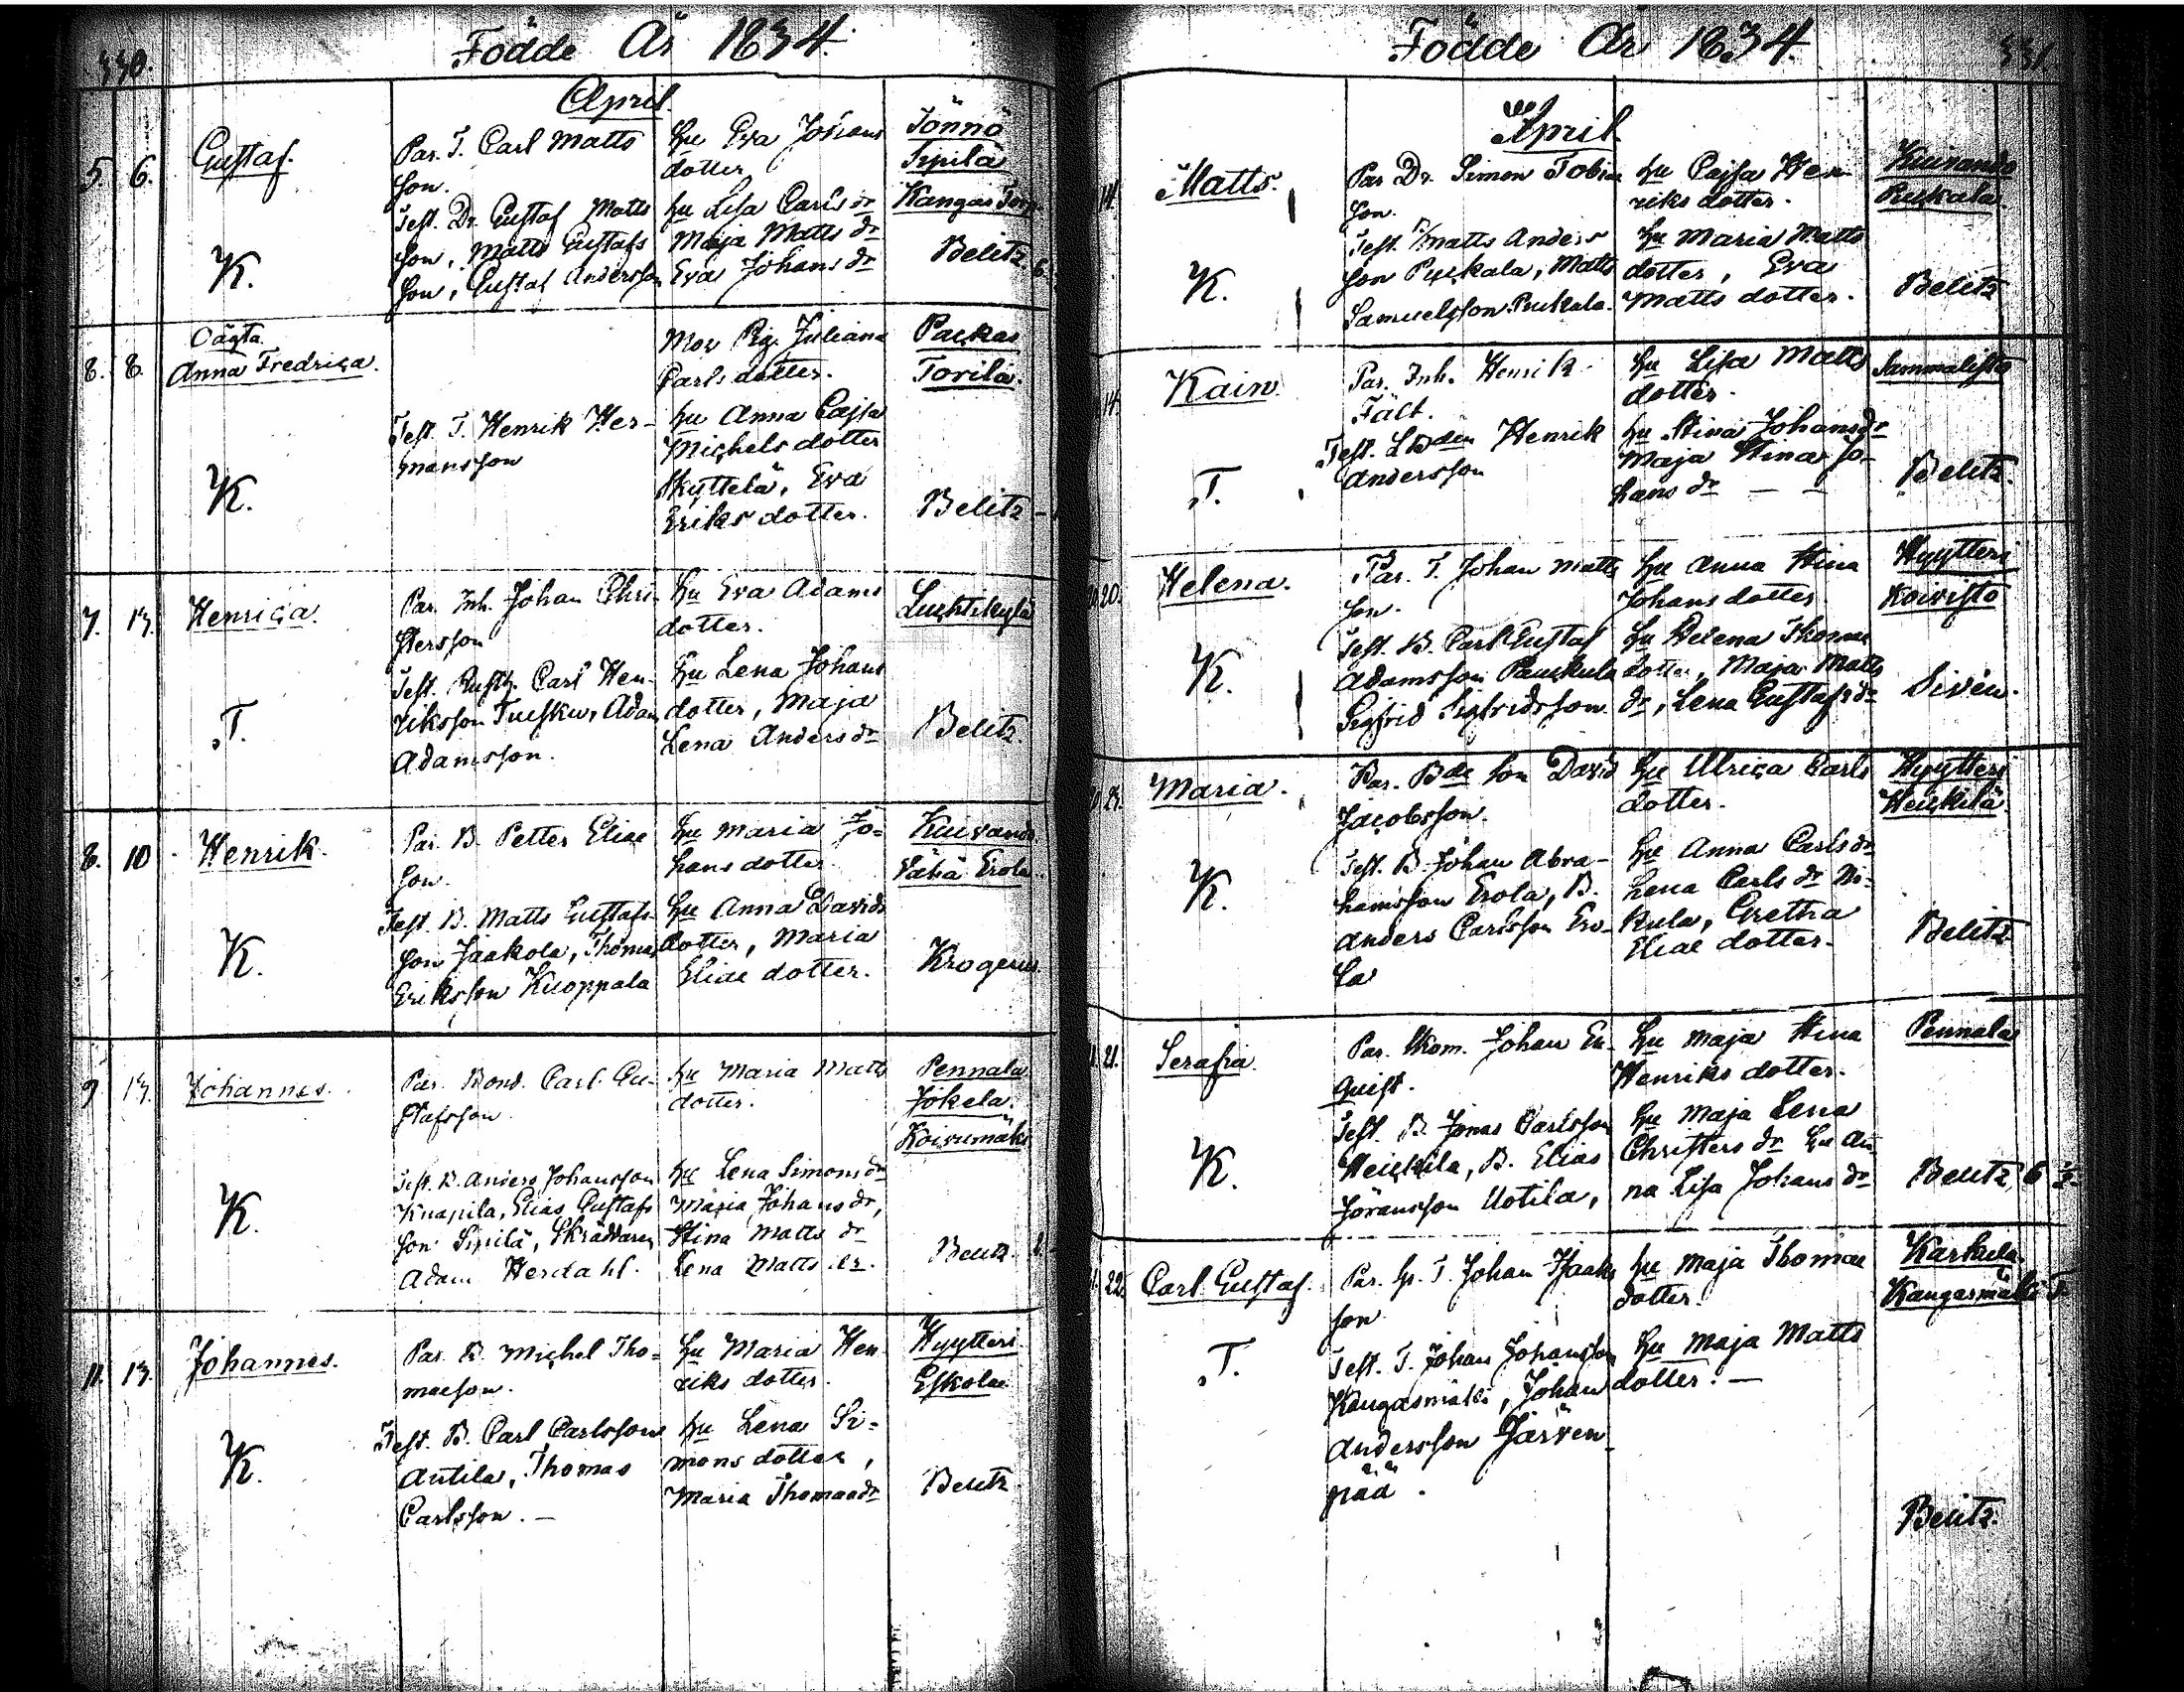 330.
Födde År 1834.
April.
5. 6. Gustaf.
Par. T. Carl Matts
son.
Hu Eva Johans
dotter
Tönnö
Sipilä
Kangas Torp
Test. Dr. Gustaf Matts
son, Matts Gustafs
son, Gustaf Andersson
Hu Lisa Carls dr
Maja Matts dr
Eva Johans dr
K.
Belitz. 6.
8. 8. Oägta.
Anna Fredrica.
Mor Pig. Juliana
Carls dotter.
Torila.
Test. T. Henrik Her-
mansson
Hu Anna Cajsa
Michels dotter
Skyttelä, Eva
Eriks dotter.
K.
Belitz
7. 13. Henrica.
Par. Inh. Johan Chri-
stersson
Hu Eva Adams
dotter.
Test. Rusth. Carl Hen-
riksson Adam
Adamsson.
Hu Lena Johans
dotter, Maja
Lena Anders dr
T.
Belitz.
8. 10. Henrik.
Par. B. Petter Eliae
son.
Hu Maria Jo-
hans dotter.
Test. B. Matts Gustafs-
son Jaakola, Thomas
Eriksson Kuoppala
Hu Anna Davids
dotter, Maria
Eliae dotter.
K.
Krogerus.
9. 13. Johannes.
Par. Bond. Carl Gu-
stafsson
Hu Maria Matts
dotter.
Pennala
Jokela.
Koivumäki
Test. B. Anders Johansson
Knapila, Elias Gustafs
son Sipilä, Skräddaren
Adam Herdahl.
Hu Lena Simons dr
Maria Johans dr,
Stina Matts dr
Lena Matts dr.
K.
Belitz.
11. 13. Johannes.
Par. B. Michel Tho-
maeson.
Hu Maria Hen-
riks dotter.
Hyytteri
Eskola
Test. B. Carl Carlsson
Antila, Thomas
Carlsson. —
Hu Lena Si-
mons dotter,
Maria Thomae dr
K.
Belitz.
Födde År 1834.
331.
April
14. Matts.
Par Dr. Simon Tobiae
son.
Hu Cajsa Hen-
riks dotter.
Test. Matts Anders
son Puckala, Matts
Samuelsson Puckala.
Hu Maria Matts
dotter, Eva
Matts dotter.
K.
Belitz
14. Kain.
Par. Inh. Henrik
Fält.
Hu Lisa Matts
dotter.
Sammalisto
Test. Henrik
Andersson
Hu Stina Johans dr
Maja Stina Jo-
hans dr — —
T.
Belitz.
20. Helena.
Par. T. Johan Matts
son.
Hu Anna Stina
Johans dotter.
Hyytteri
Koivisto
Test. B. Carl Gustaf
Adamsson
Sigfrid Sigfridsson.
Hu Helena Thomae
dotter, Maja Matts
dr, Lena Gustafs dr
K.
Sivén.
Maria.
Par. Bde son David
Jacobsson.
Hu Ulrica Carls
dotter.
Hyytteri
Heickilä.
Test. B. Johan Abra-
hamsson Erola, B.
Anders Carlsson Ero-
la
Hu Anna Carls dr
Lena Carls dr
Gretha
Eliae dotter.
K.
Belitz
21. Serafia.
Par. Skom. Johan En-
quist.
Hu Maja Stina
Henriks dotter.
Pennala
Test. B. Jonas Carlsson
Heickilä, B. Elias
Jöransson Uotila,
Hu Maja Lena
Christers dr Hu An-
na Lisa Johans dr
K.
Belitz
22. Carl Gustaf.
Par. T. Johan Isaaks
son
Hu Maja Thomae
dotter.
Karhula
Kangasmäki T.
Test. T. Johan Johansson
Kangasmäki, Johan
Andersson Järven-
pää.
Hu Maja Matts
dotter. —
T.
Belitz.